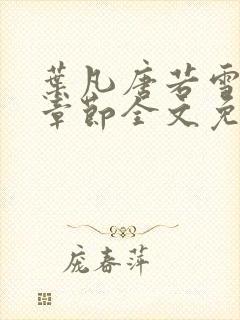 葉凡唐若雪
章節全文免
庞春萍